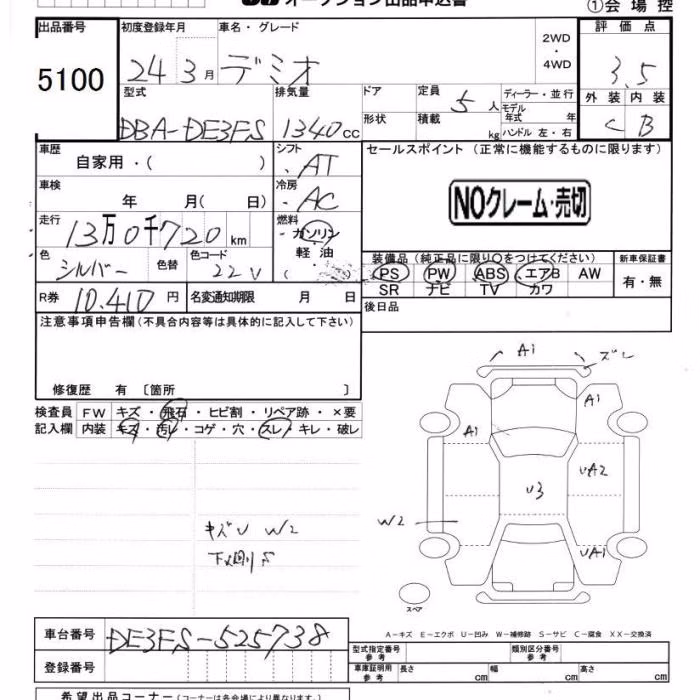 オークション出品申込書
①会場控
出品番号 初度登録年月 車名・グレード 2WD・4WD 評価点
5100 24 3月 デミオ 3.5
型式 排気量 ドア 定員 ディーラー・並行 外装 内装
DBA-DE3FS 1340cc 5人 モデル年式 年 C B
形状 積載 kg ハンドル 左・右
車歴 シフト セールスポイント(正常に機能するものに限ります)
自家用・( ) ・AT
車検 冷房
年 月( 日) ・AC NOクレーム・売切
走行 燃料
13万0千720km ・ガソリン
軽油
色 色替 色コード 装備品(純正品に限り○をつけてください) 新車保証書
シルバー 22V ( PS PW ABS エアB AW 有・無
SR ナビ TV カワ
R券 10,410円 名変通知期限 月 日 後日品
注意事項申告欄(不具合内容等は具体的に記入して下さい)
修復歴 有 〔箇所 〕
検査員 FW キズ・飛石・ヒビ割・リペア跡・×要
記入欄 内装 キズ・汚レ・コゲ・穴・スレ・キレ・破レ
A1 ズレ
A1
A1
UA2
U3
W2
UA1
キズU W2
下廻りS
スペア
A-キズ E-エクボ U-凹み W-補修跡 S-サビ C-腐食 XX-交換済
車台番号 DE3FS-525738
型式指定番号 参考 類別区分番号 参考
登録番号 車庫証明用 参考 長さ cm 幅 cm 高さ cm
希望出品コーナー(コーナーは各会場により異なります)